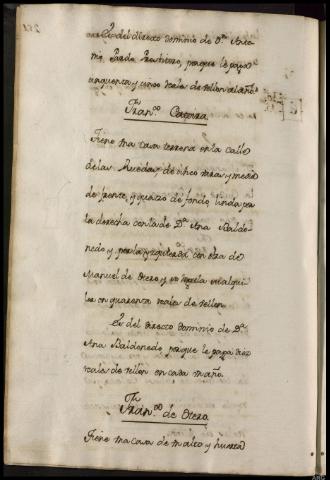 Es del directo dominio de Dn. Anto
nio Pardo Presvitero, porque le paga
cinquenta y cinco reales de vellon al año
Franco. Caveira
Tiene una casa terrena en la calle
de las Ruedas de cinco varas y media
de frente, y quarzo de fondo, linda por
la derecha con la de Da. Ana Balde
nedo y por la yzquierda con otra de
Manuel de Otero y vº
en quarenta reales de vellon
Es del directo dominio de Da.
Ana Baldonedo porque le paga diez
reales de vellon en cada un año
Franco. de Otero
Tiene una casa de un alto y huerta